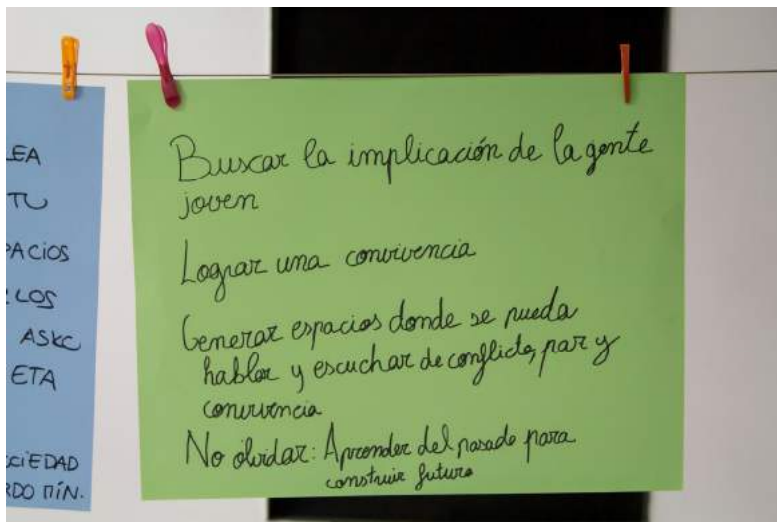 EA
TU
PACIOS
LOS
ASKO
ETA
CIEDAD
RDO MÍN.
Buscar la implicación de la gente
joven
Lograr una convivencia
Generar espacios donde se pueda
hablar y escuchar de conflicto, paz y
convivencia
No olvidar: Aprender del pasado para
construir futuro